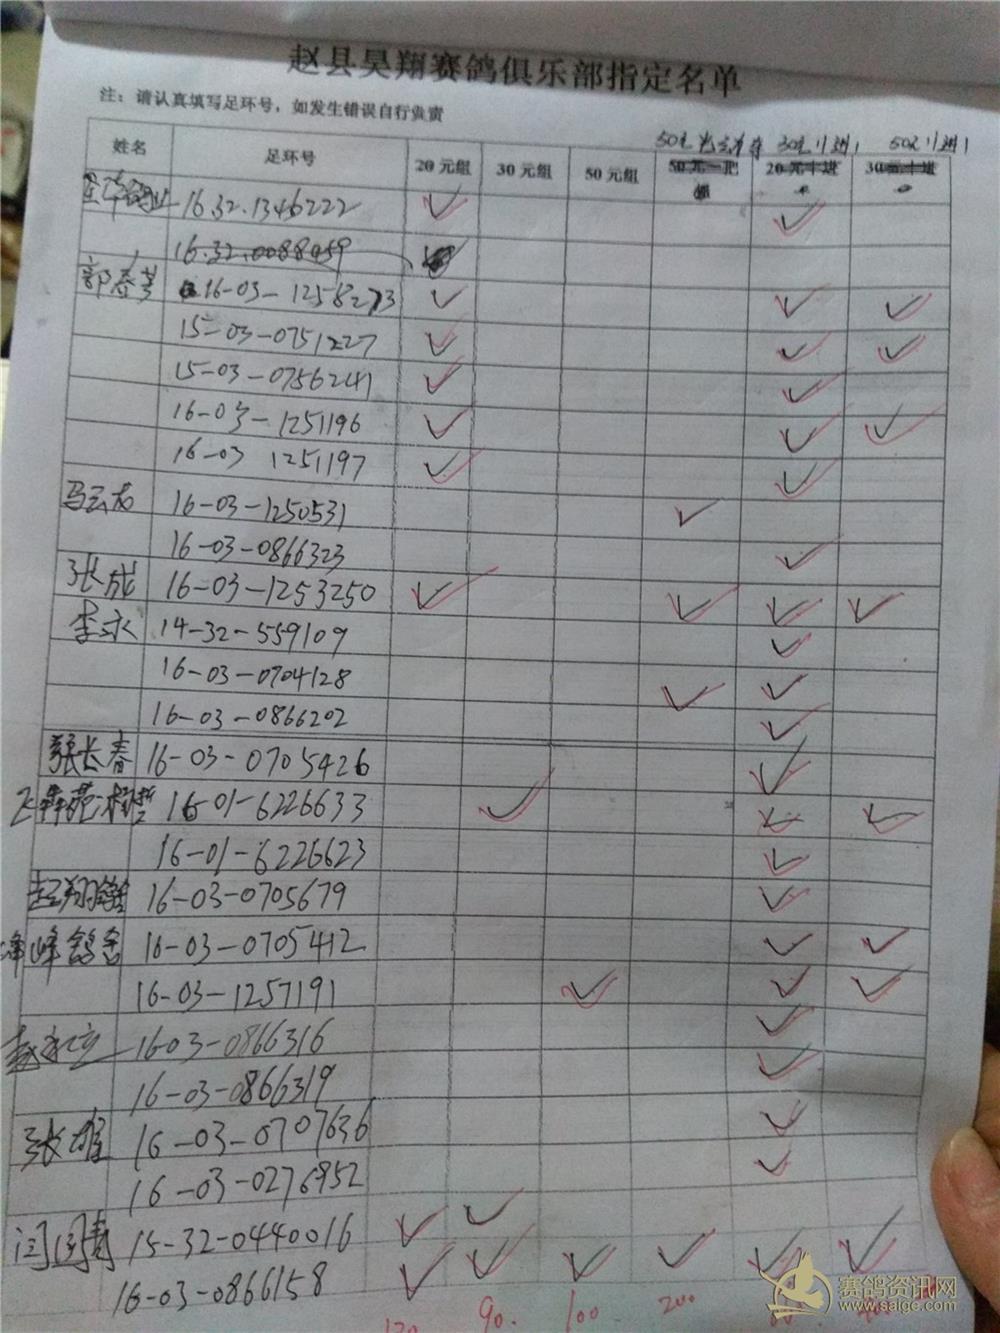 赵县昊翔赛鸽俱乐部指定名单
注：请认真填写足环号，如发生错误自行负责
50元 30元1/进1 50元1/进1
姓名 足环号 20元组 30元组 50元组 50元一把组 20元十进 30元十进
16.32.1346222
16.32.0088059
郭春 16-03-1258273
15-03-0751227
15-03-0756241
16-03-1251196
16-03 1251197
马云龙 16-03-1250531
16-03-0866323
张成 16-03-1253250
李永 14-32-559109
16-03-0704128
16-03-0866202
张长春 16-03-0705426
16-01-6226633
16-01-6226623
赵翔鸽舍 16-03-0705679
峰鸽舍 16-03-0705412
16-03-1257191
16-03-0866316
16-03-0866319
张雄 16-03-0707636
16-03-0276952
闫国青 15-32-0440016
16-03-0866158
120. 90. 100. 200.
赛鸽资讯网
www.saige.com